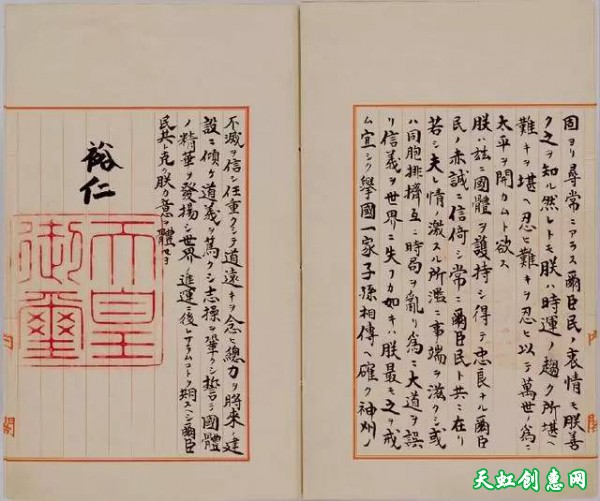 固ヨリ尋常ニアラス爾臣民ノ衷情モ朕善
ク之ヲ知ル然レトモ朕ハ時運ノ趨ク所堪ヘ
難キヲ堪ヘ忍ヒ難キヲ忍ヒ以テ萬世ノ爲ニ
太平ヲ開カムト欲ス
朕ハ茲ニ國體ヲ護持シ得テ忠良ナル爾臣
民ノ赤誠ニ信倚シ常ニ爾臣民ト共ニ在リ
若シ夫レ情ノ激スル所濫ニ事端ヲ滋クシ或
ハ同胞排擠互ニ時局ヲ亂リ爲ニ大道ヲ誤
リ信義ヲ世界ニ失フカ如キハ朕最モ之ヲ戒
ム宜シク擧國一家子孫相傳ヘ確ク神州ノ
不滅ヲ信シ任重クシテ道遠キヲ念ヒ總力ヲ將來ノ建
設ニ傾ケ道義ヲ篤クシ志操ヲ鞏クシ誓テ國體
ノ精華ヲ發揚シ世界ノ進運ニ後レサラムコトヲ期スヘシ爾臣
民其レ克ク朕カ意ヲ體セヨ
裕仁
天皇
御璽
閣
閣
天虹创惠网